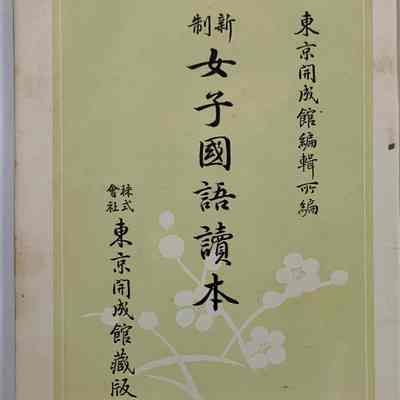 東京開成館編輯所編
新制
女子國語讀本
株式會社
東京開成館藏版